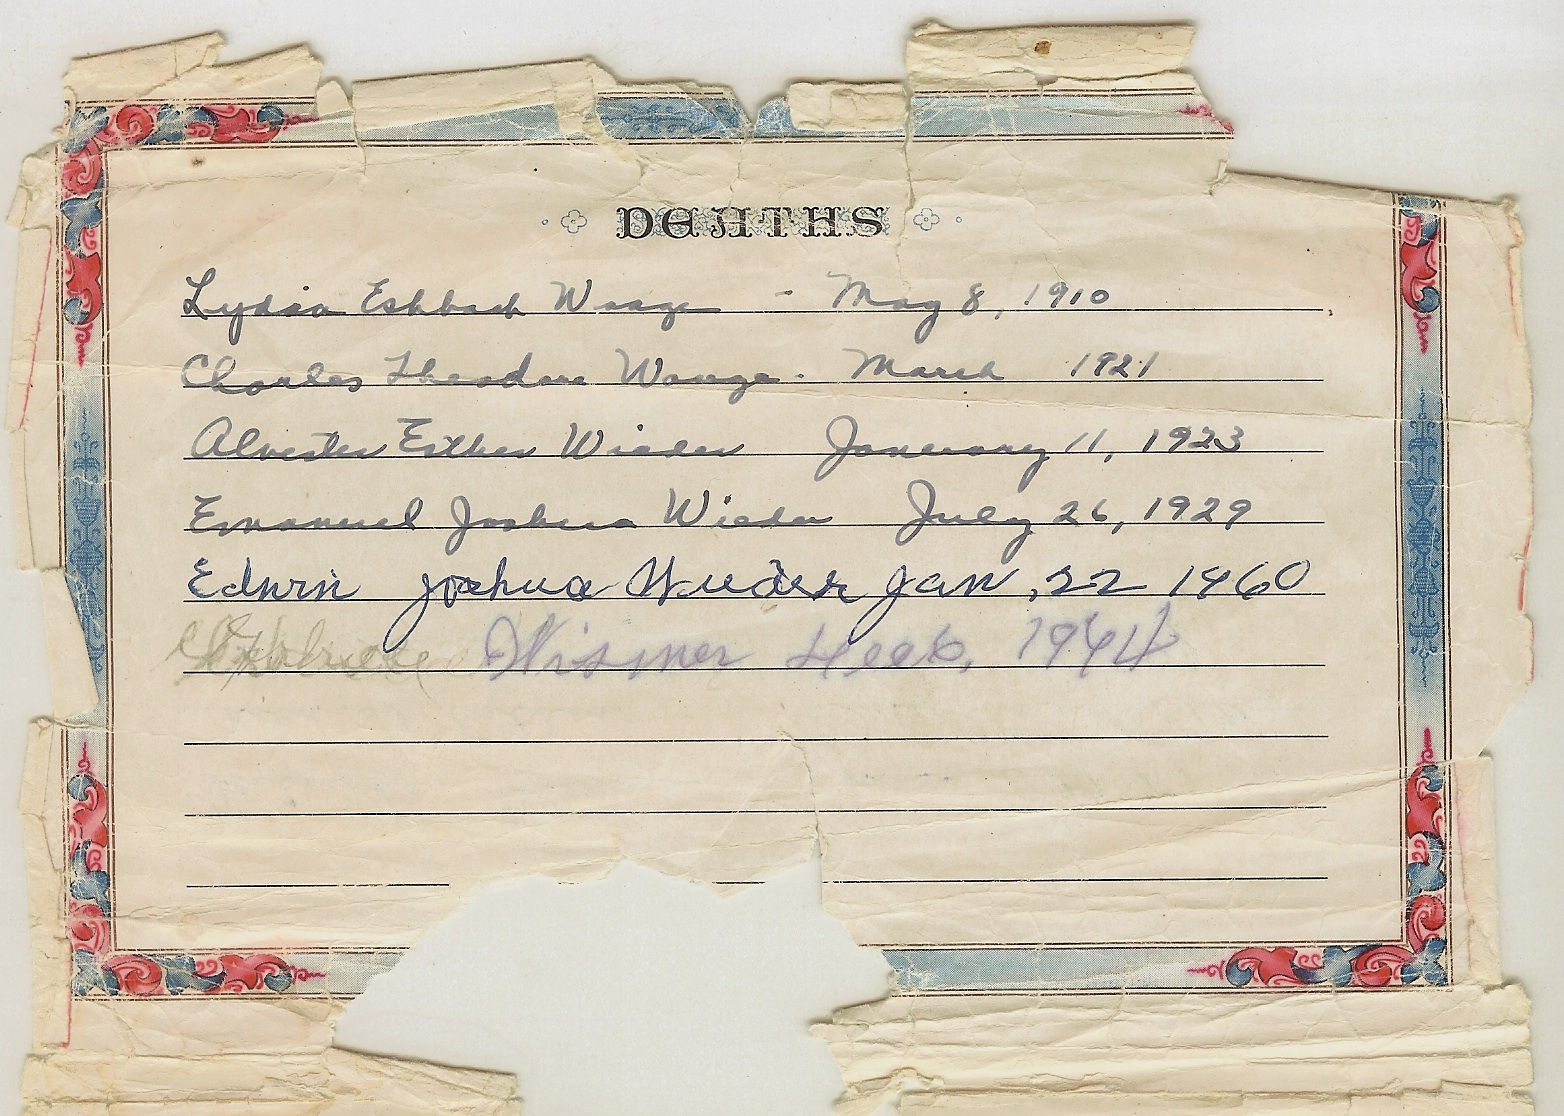 DEATHS
Lydia Eshbach Waage - May 8, 1910
Charles Theodore Waage - March 1921
Alvester Esther Wieder January 11, 1923
Emanuel Joshua Wieder July 26, 1929
Edwin Joshua Wieder Jan, 22 1960
Wismer 1944